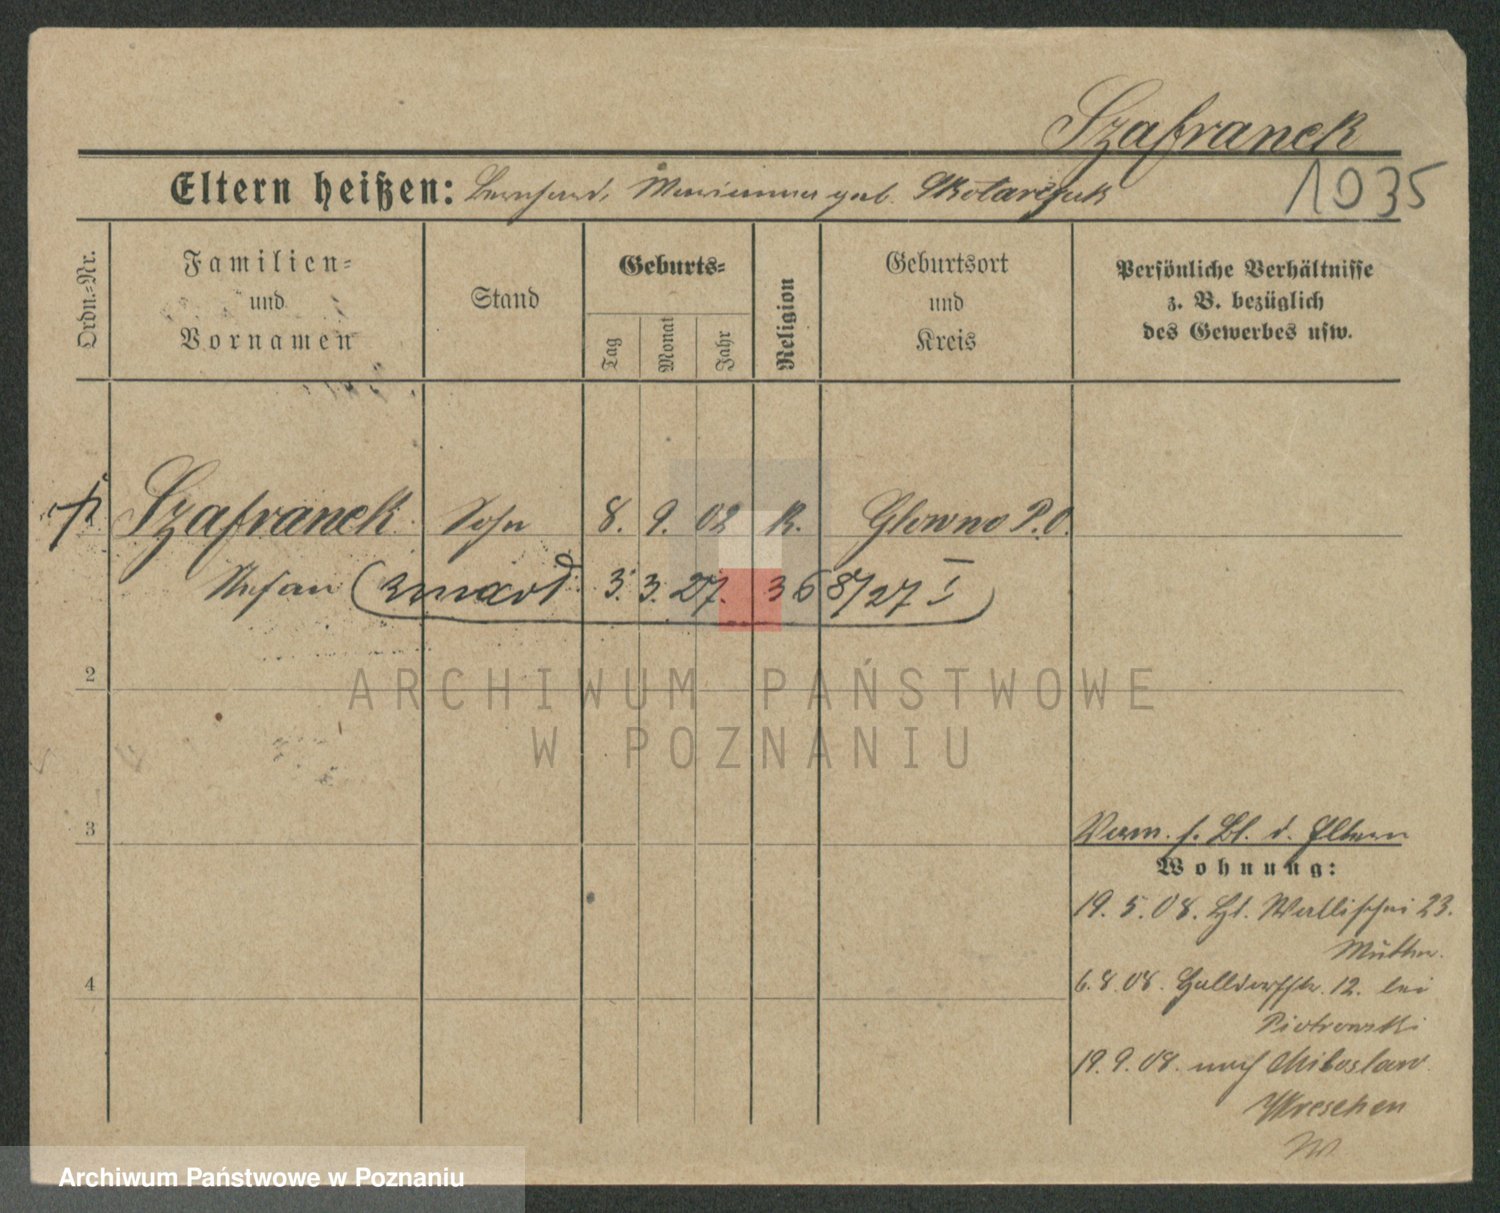 Szafranek
Eltern heißen: Bernhard, Marianna geb. Skotarczak
1035
Ordn.-Nr.
Familien-
und
Vornamen
Stand
Geburts-
Tag
Monat
Jahr
Religion
Geburtsort
und
Kreis
Persönliche Verhältnisse
z. B. bezüglich
des Gewerbes usw.
Szafranek Sohn 8. 9. 02 K. Glowno P.O.
Stefan (zmarł 3. 3. 27. 368/27 I)
2
3
4
Verm. s. Bl. d. Eltern
Wohnung:
19. 5. 08. Wallischei 23.
Mutter.
6. 8. 08. 12. bei
Piotrowski
19. 9. 08. nach Miloslaw
Wreschen
ARCHIWUM PAŃSTWOWE
W POZNANIU
Archiwum Państwowe w Poznaniu